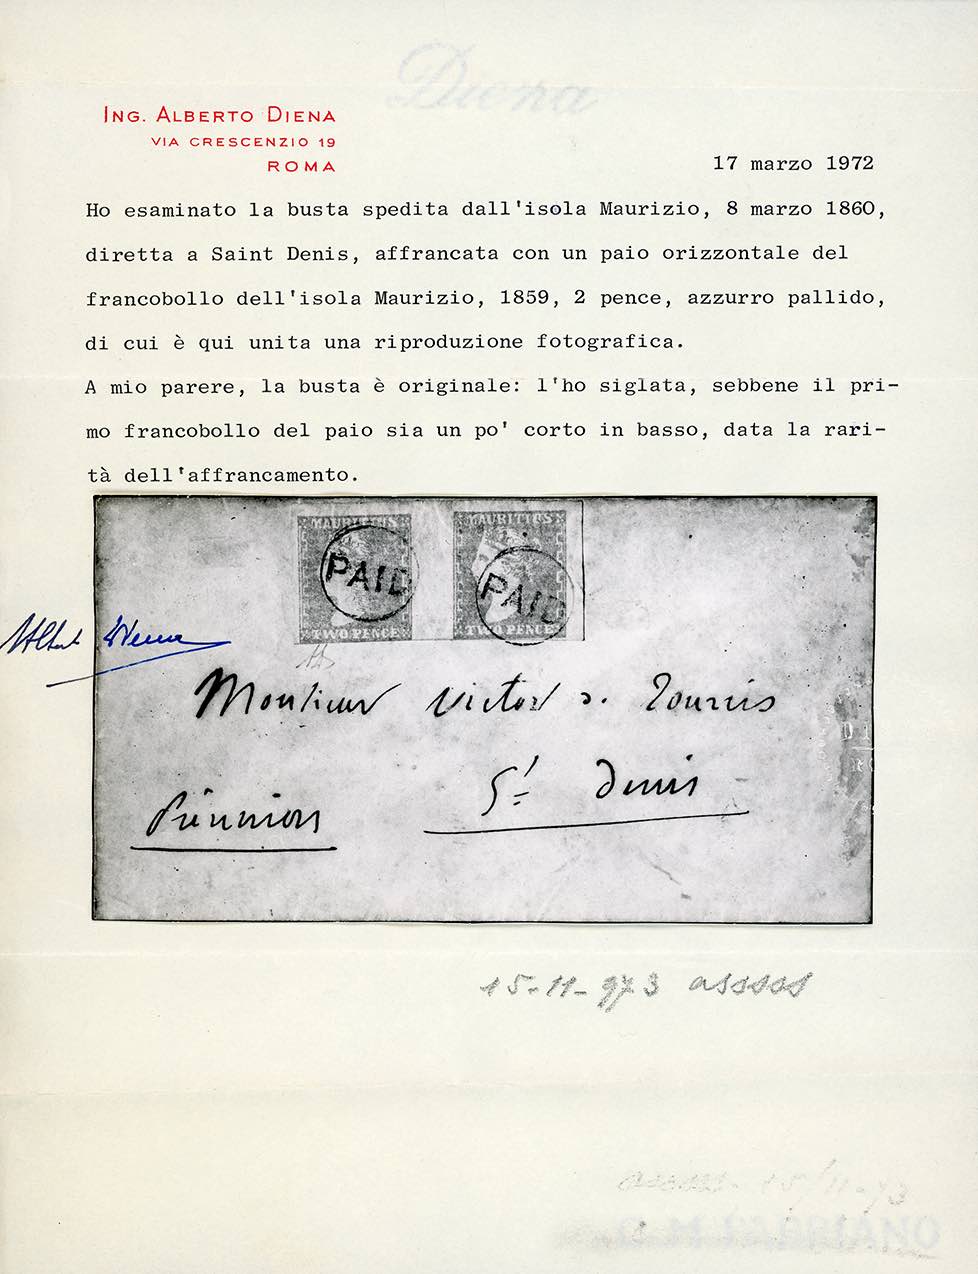 Diena
ING. ALBERTO DIENA
VIA CRESCENZIO 19
ROMA
17 marzo 1972
Ho esaminato la busta spedita dall'isola Maurizio, 8 marzo 1860,
diretta a Saint Denis, affrancata con un paio orizzontale del
francobollo dell'isola Maurizio, 1859, 2 pence, azzurro pallido,
di cui è qui unita una riproduzione fotografica.
A mio parere, la busta è originale: l'ho siglata, sebbene il pri-
mo francobollo del paio sia un po' corto in basso, data la rari-
tà dell'affrancamento.
MAURITIUS MAURITIUS
PAID PAID
TWO PENCE TWO PENCE
Monsieur Victor
St Denis
Réunion
15-11-973